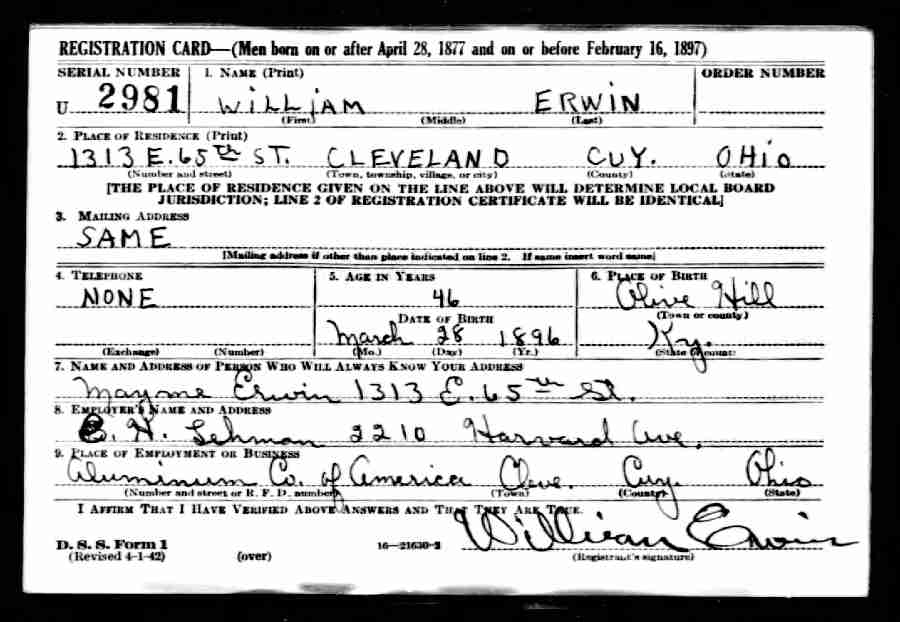 REGISTRATION CARD—(Men born on or after April 28, 1877 and on or before February 16, 1897)
SERIAL NUMBER 1. NAME (Print) ORDER NUMBER
U 2981 WILLIAM ERWIN
(First) (Middle) (Last)
2. PLACE OF RESIDENCE (Print)
1313 E. 65th ST. CLEVELAND CUY. OHIO
(Number and street) (Town, township, village, or city) (County) (State)
[THE PLACE OF RESIDENCE GIVEN ON THE LINE ABOVE WILL DETERMINE LOCAL BOARD
JURISDICTION; LINE 2 OF REGISTRATION CERTIFICATE WILL BE IDENTICAL]
3. MAILING ADDRESS
SAME
[Mailing address if other than place indicated on line 2. If same insert word same]
4. TELEPHONE 5. AGE IN YEARS 6. PLACE OF BIRTH
NONE 46 Olive Hill
DATE OF BIRTH (Town or county)
March 28 1896 Ky.
(Exchange) (Number) (Mo.) (Day) (Yr.) (State or country)
7. NAME AND ADDRESS OF PERSON WHO WILL ALWAYS KNOW YOUR ADDRESS
Mayme Erwin 1313 E. 65th St.
8. EMPLOYER'S NAME AND ADDRESS
E. H. Lehman 2210 Harvard Ave.
9. PLACE OF EMPLOYMENT OR BUSINESS
Aluminum Co. of America Cleve. Cuy. Ohio
(Number and street or R. F. D. number) (Town) (County) (State)
I AFFIRM THAT I HAVE VERIFIED ABOVE ANSWERS AND THAT THEY ARE TRUE.
D. S. S. Form 1
(Revised 4-1-42) (over) 16—21630-2 William Erwin
(Registrant's signature)